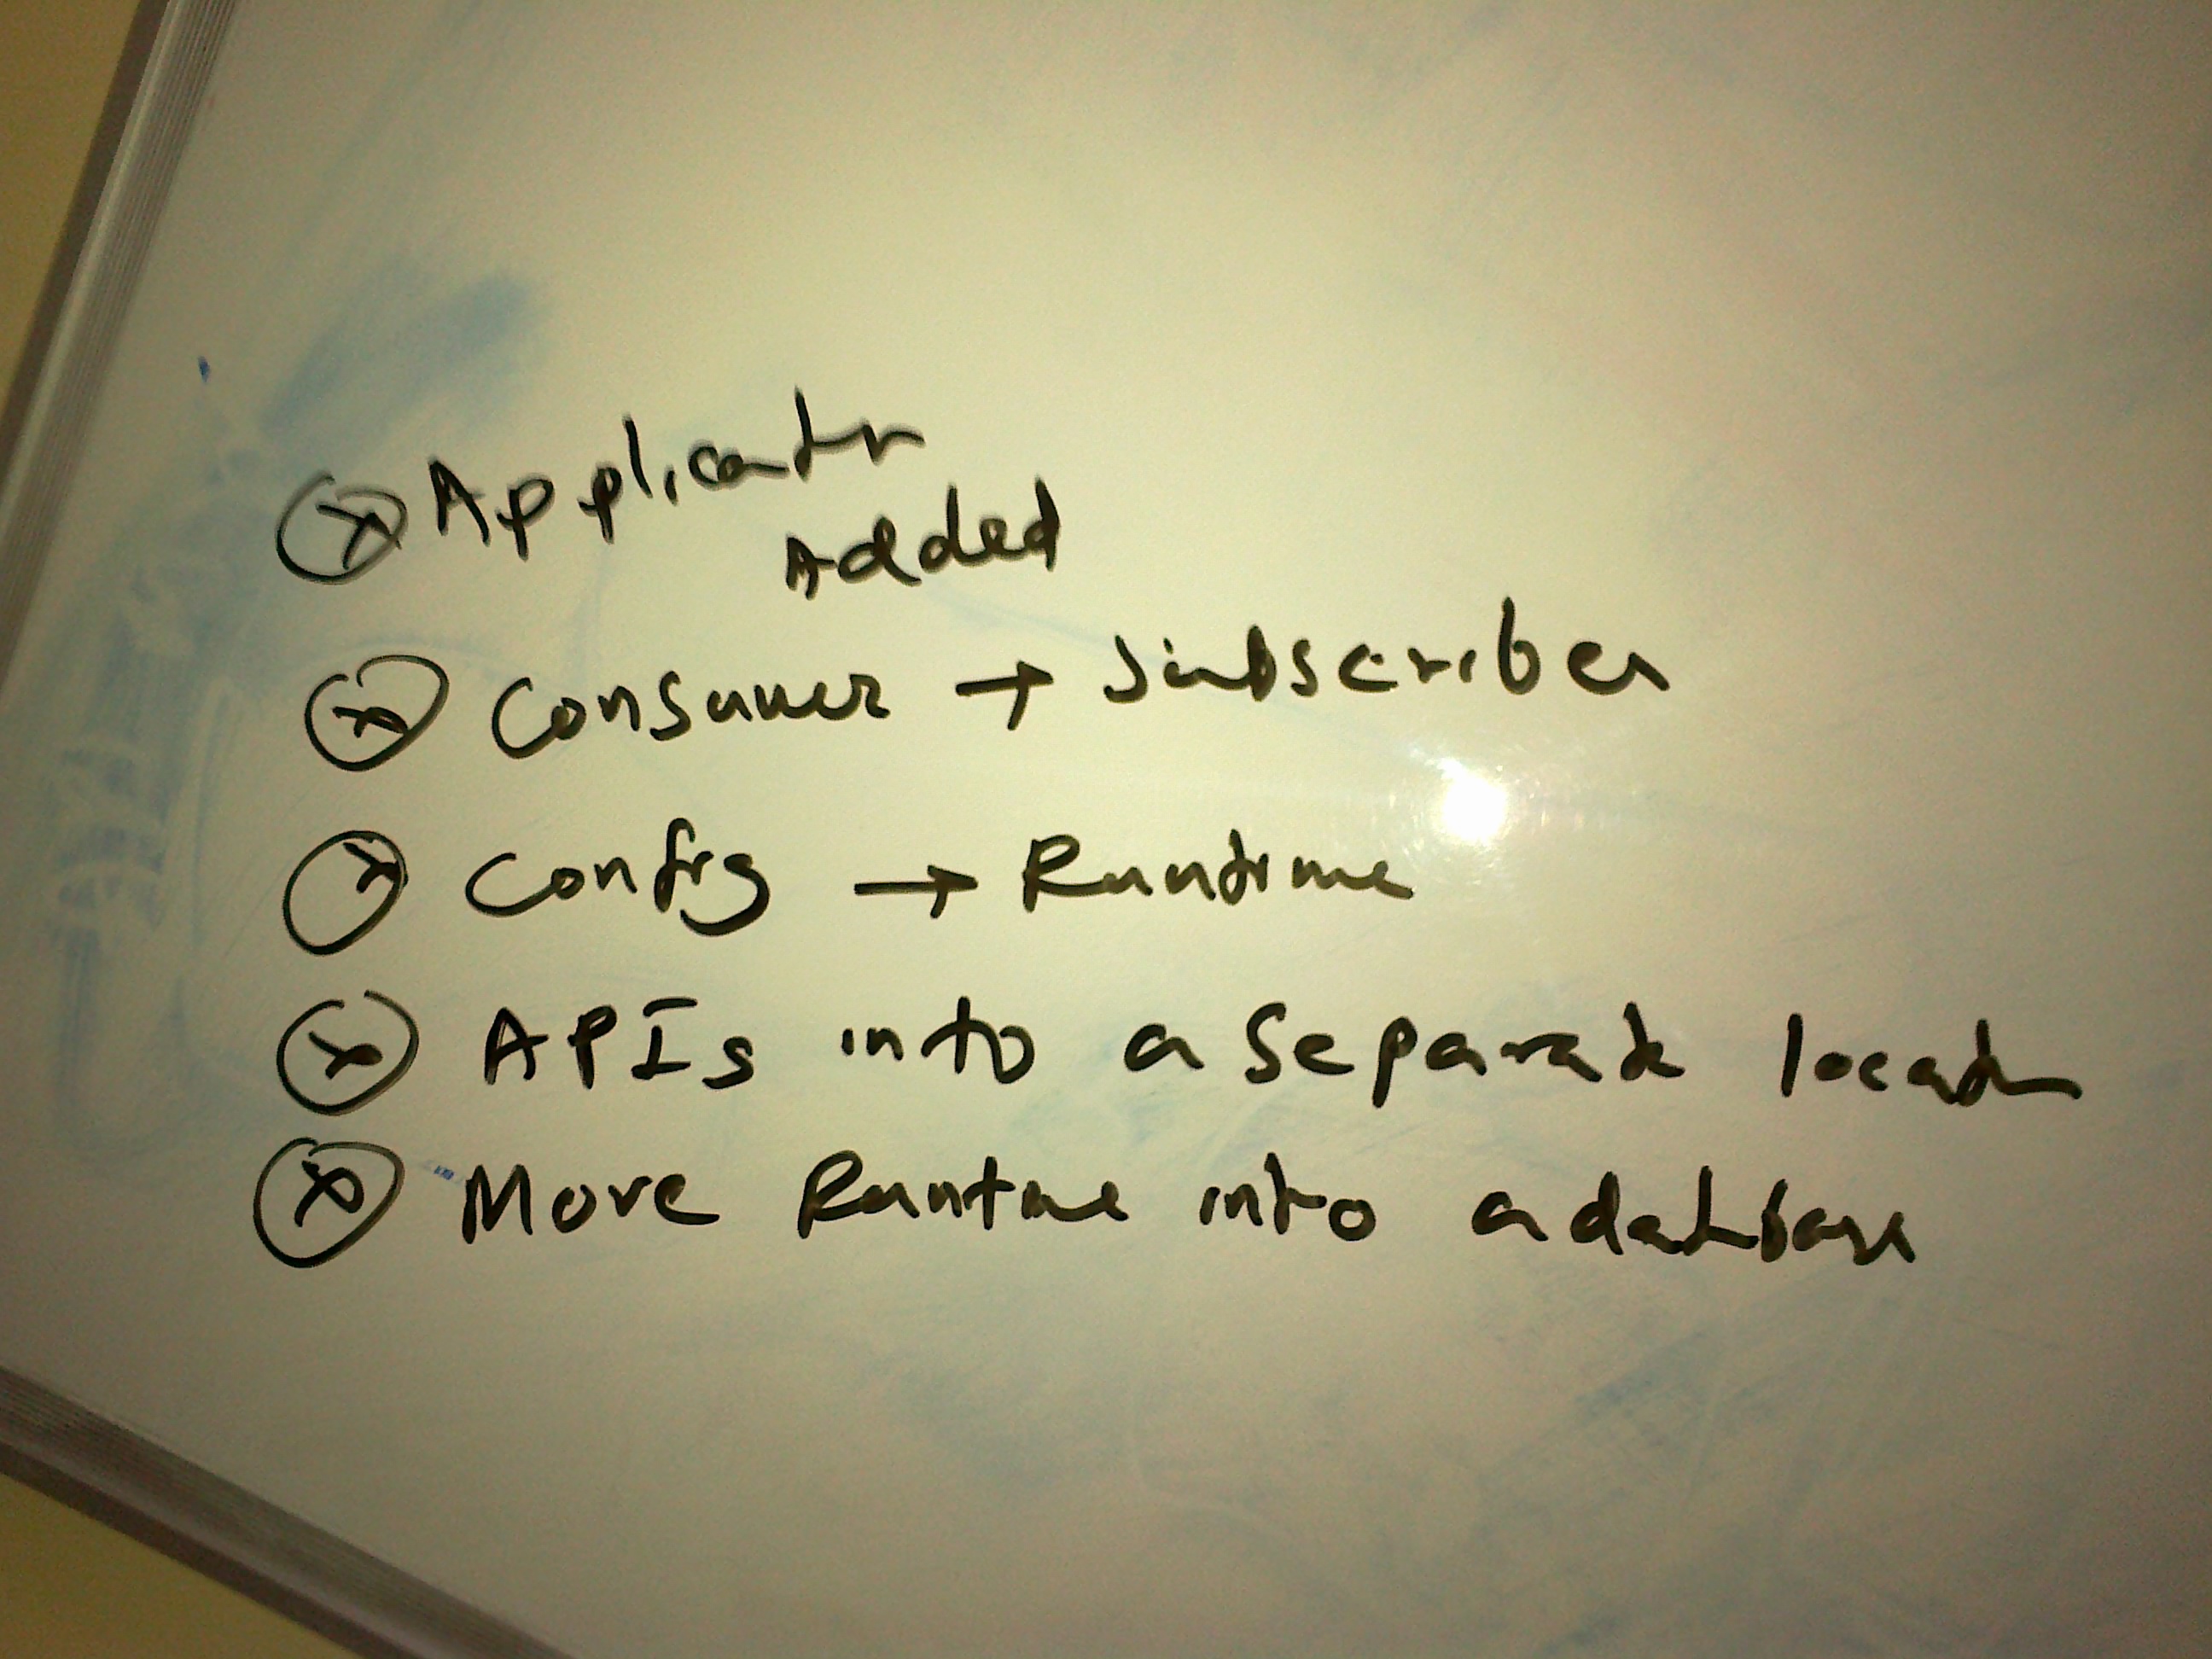 Application
Added
Consumer → Subscriber
Config → Runtime
APIs into a separate location
Move Runtime into a database